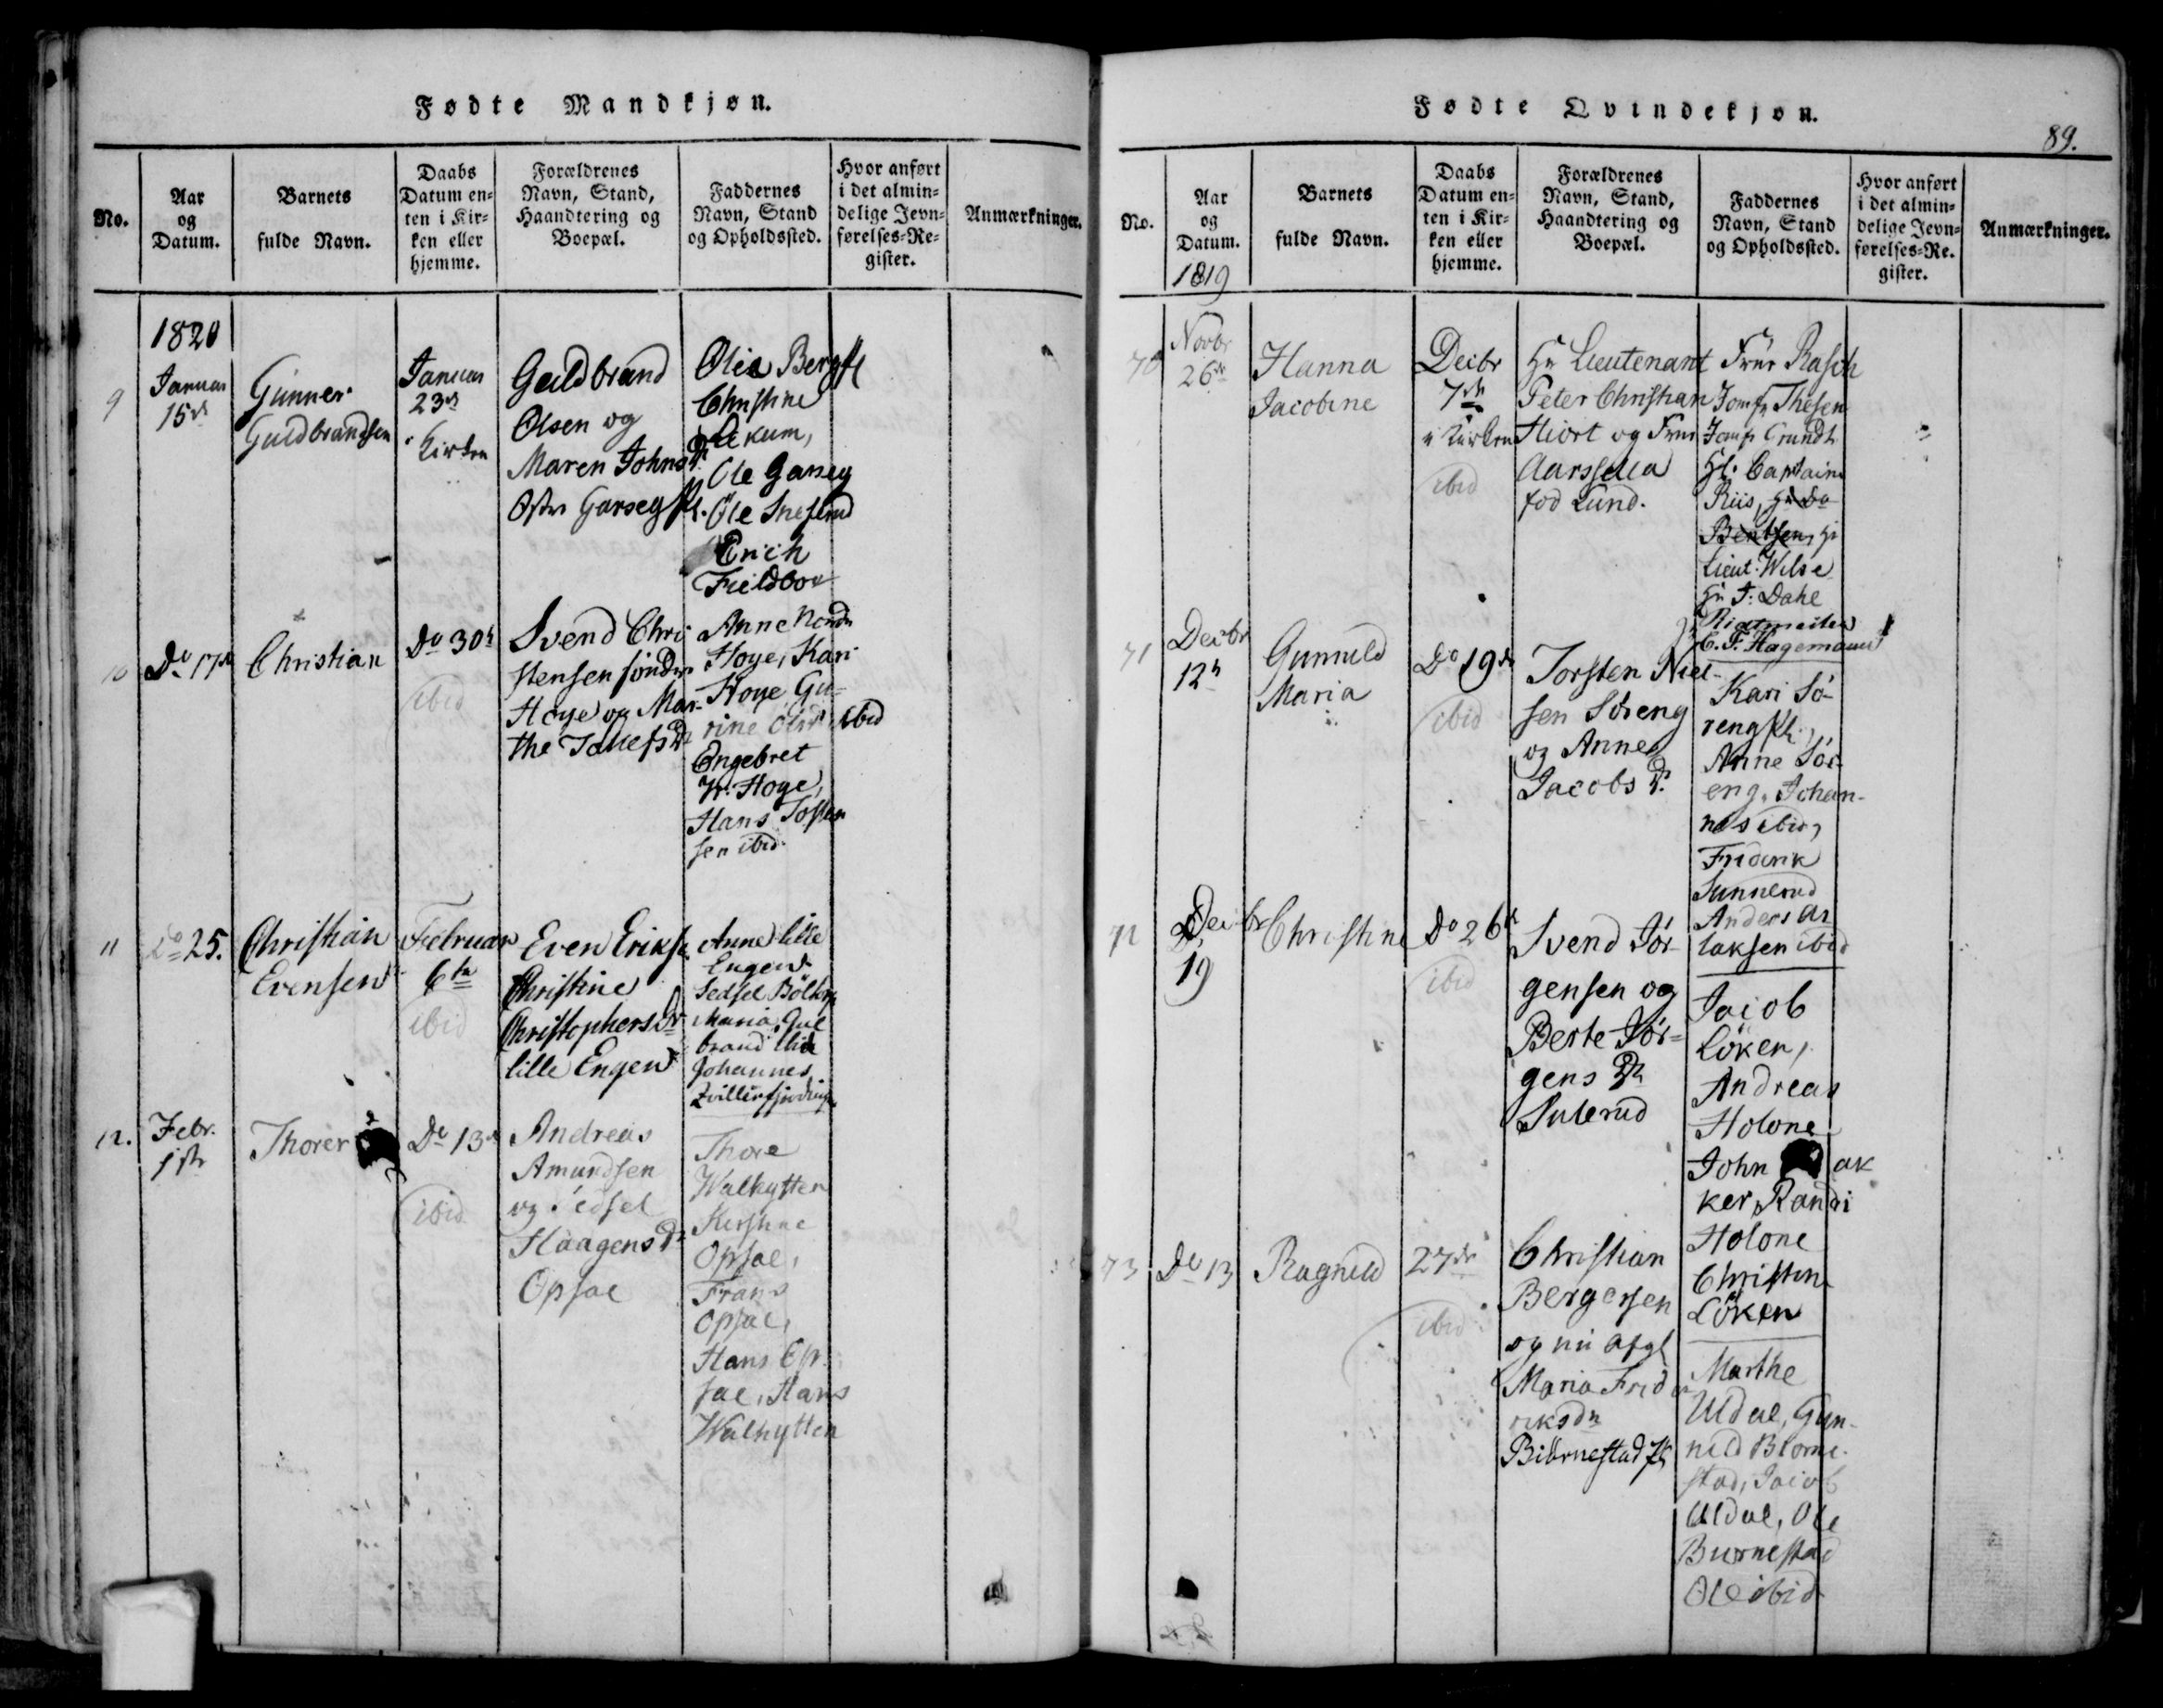 Fødte Mandkjøn.
No.
Aar
og
Datum.
Barnets
fulde Navn.
Daabs
Datum en-
ten i Kir-
ken eller
hjemme.
Forældrenes
Navn, Stand,
Haandtering og
Boepæl.
Faddernes
Navn, Stand
og Opholdssted.
Hvor anført
i det almin-
delige Jevn-
førelses-Re-
gister.
Anmærkninger.
1820
9
Januar
15de
Gunner
Guldbrandsen
Januar
23de
i Kirken
Guldbrand
Olsen og
Maren Johns Dr
Garseg
Olia
Christine
Ole Garseg
Ole
Erich
10
Do 17de
Christian
Do 30te
ibid
Svend Chri
stensen
Hoye og Mar-
the
Anne
Hoye, Kari
Hoye Gu-
rine ibid
Engebret
Hoye,
Hans
sen ibid
11
Do 25.
Christian
Evensen
Februar
6te
ibid
Even Eriks.
Christine
Christophersdr
lille Engen
Anne lille
Engen
Maria, Gul
brand
Johannes
12.
Febr.
1ste
Thorer
Do 13de
ibid
Andreas
Amundsen
og Sedsel
Haagensdr
Opsae
Thore
Walhytten
Opsae,
Frans
Opsae,
Hans Op-
sae, Hans
Walhytten
Fødte Qvindekjøn.
89.
No.
Aar
og
Datum.
1819
Barnets
fulde Navn.
Daabs
Datum en-
ten i Kir-
ken eller
hjemme.
Forældrenes
Navn, Stand,
Haandtering og
Boepæl.
Faddernes
Navn, Stand
og Opholdssted.
Hvor anført
i det almin-
delige Jevn-
førelses-Re-
gister.
Anmærkninger.
70
Novbr
26de
Hanna
Jacobine
Decbr
7de
i Kirken
ibid
Hr Lieutenant
Peter Christian
Hiort og Frue
fød Lund.
Frue Rasch
Jomfr Thesen
Jomfr Grundt
Hr. Captaine
Riis, Hr
Bentsen, Hr
Lieut. Wilse
Hr J. Dahl
C. F. Hagemann
71
Decbr
12te
Gunnild
Maria
Do 19de
ibid
Torsten Niel-
sen Søreng
og Anne
Jacobs Dr.
Kari Sö-
reng
Anne Sör-
eng, Johan-
nes ibid,
Friderik
Sunnerud
Anders As
laksen ibid
72
Decbr
19
Christine
Do 26de
ibid
Svend Jör-
gensen og
Berte Jör-
gens Dr
Sulerud
Jacob
Löken,
Andreas
Holone
John ak
ker, Randi
Holone
Christine
Löken
73
De 13
Ragnild
27de
ibid
Christian
Bergersen
og nu afgl
Maria Frid
riksdr
Biörnestad
Marthe
Uldal, Gun-
nild Biörne-
stad, Jacob
Uldal, Ole
Biörnestad
Ole ibid